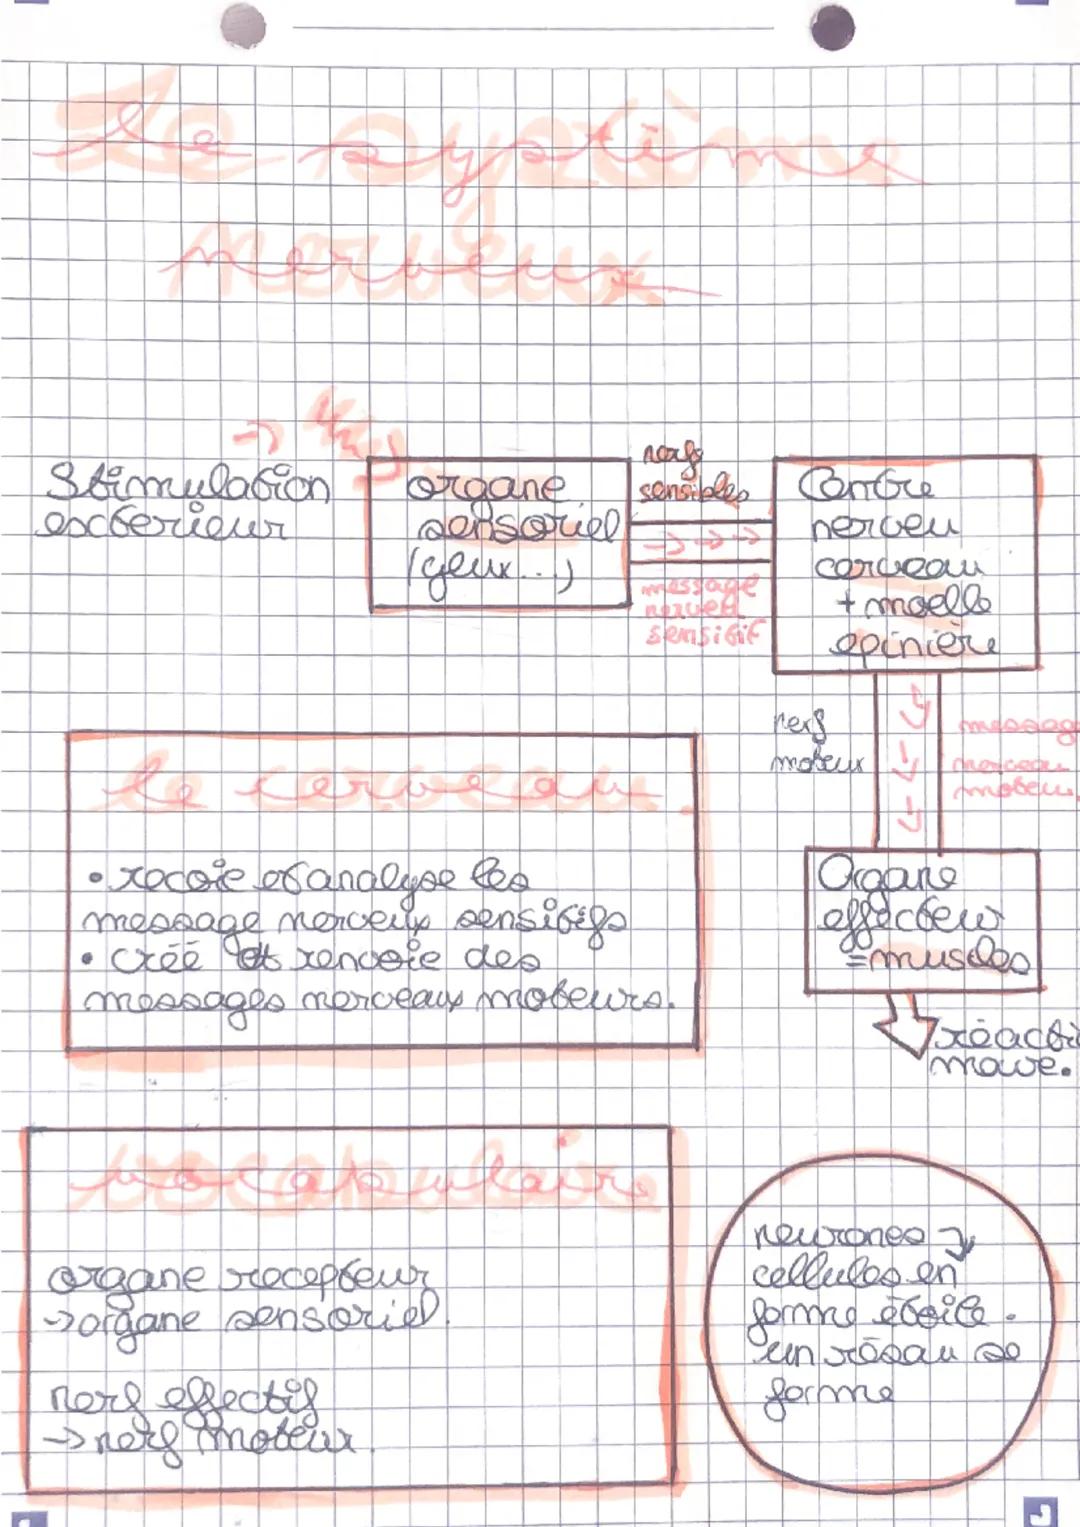 Le système
nerveux
Stimulation
exterieur
organe
sensoriel
(yeux...)
nerfs
sensibles
message
nerveu
sensitif
Centre
nerveu
cerveau
+ moelle
epinière
nerf
moteux
messag
nerveau
moteu
Organe
effecteur
=muscles
réacti
mouve.
le cerveau.
• recoie et analyse les
message nerveux sensitifs
• créé et renvoie des
messages nerveaux moteurs.
vocabulaire
organe recepteur
->organe sensoriel.
nerf effectif
->nerf moteur.
neurones ->
cellules en
forme étoile.
un résau se
forme